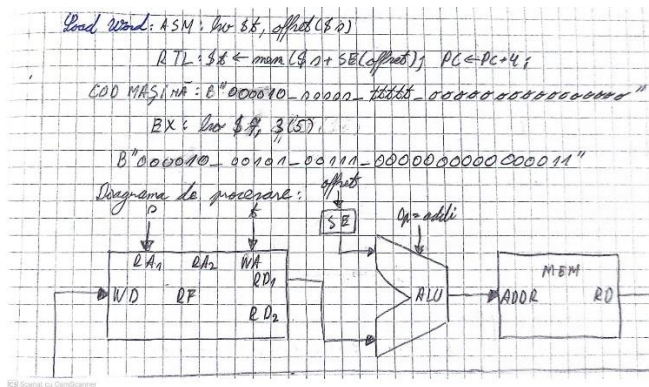 Load Word: ASM: lw $t, offset($s)
RTL: $t ← mem($s + SE(offset)); PC ← PC+4;
COD MAȘINĂ: B"000010_sssss_ttttt_oooooooooooooooo"
EX: lw $7, 3(5)
B"000010_00101_00111_0000000000000011"
Diagrama de procesare:
offset
s
t
SE
Op=addi
RA1 RA2 WA
RD1
WD RF
RD2
ALU
MEM
ADDR RD
CS Scanat cu CamScanner